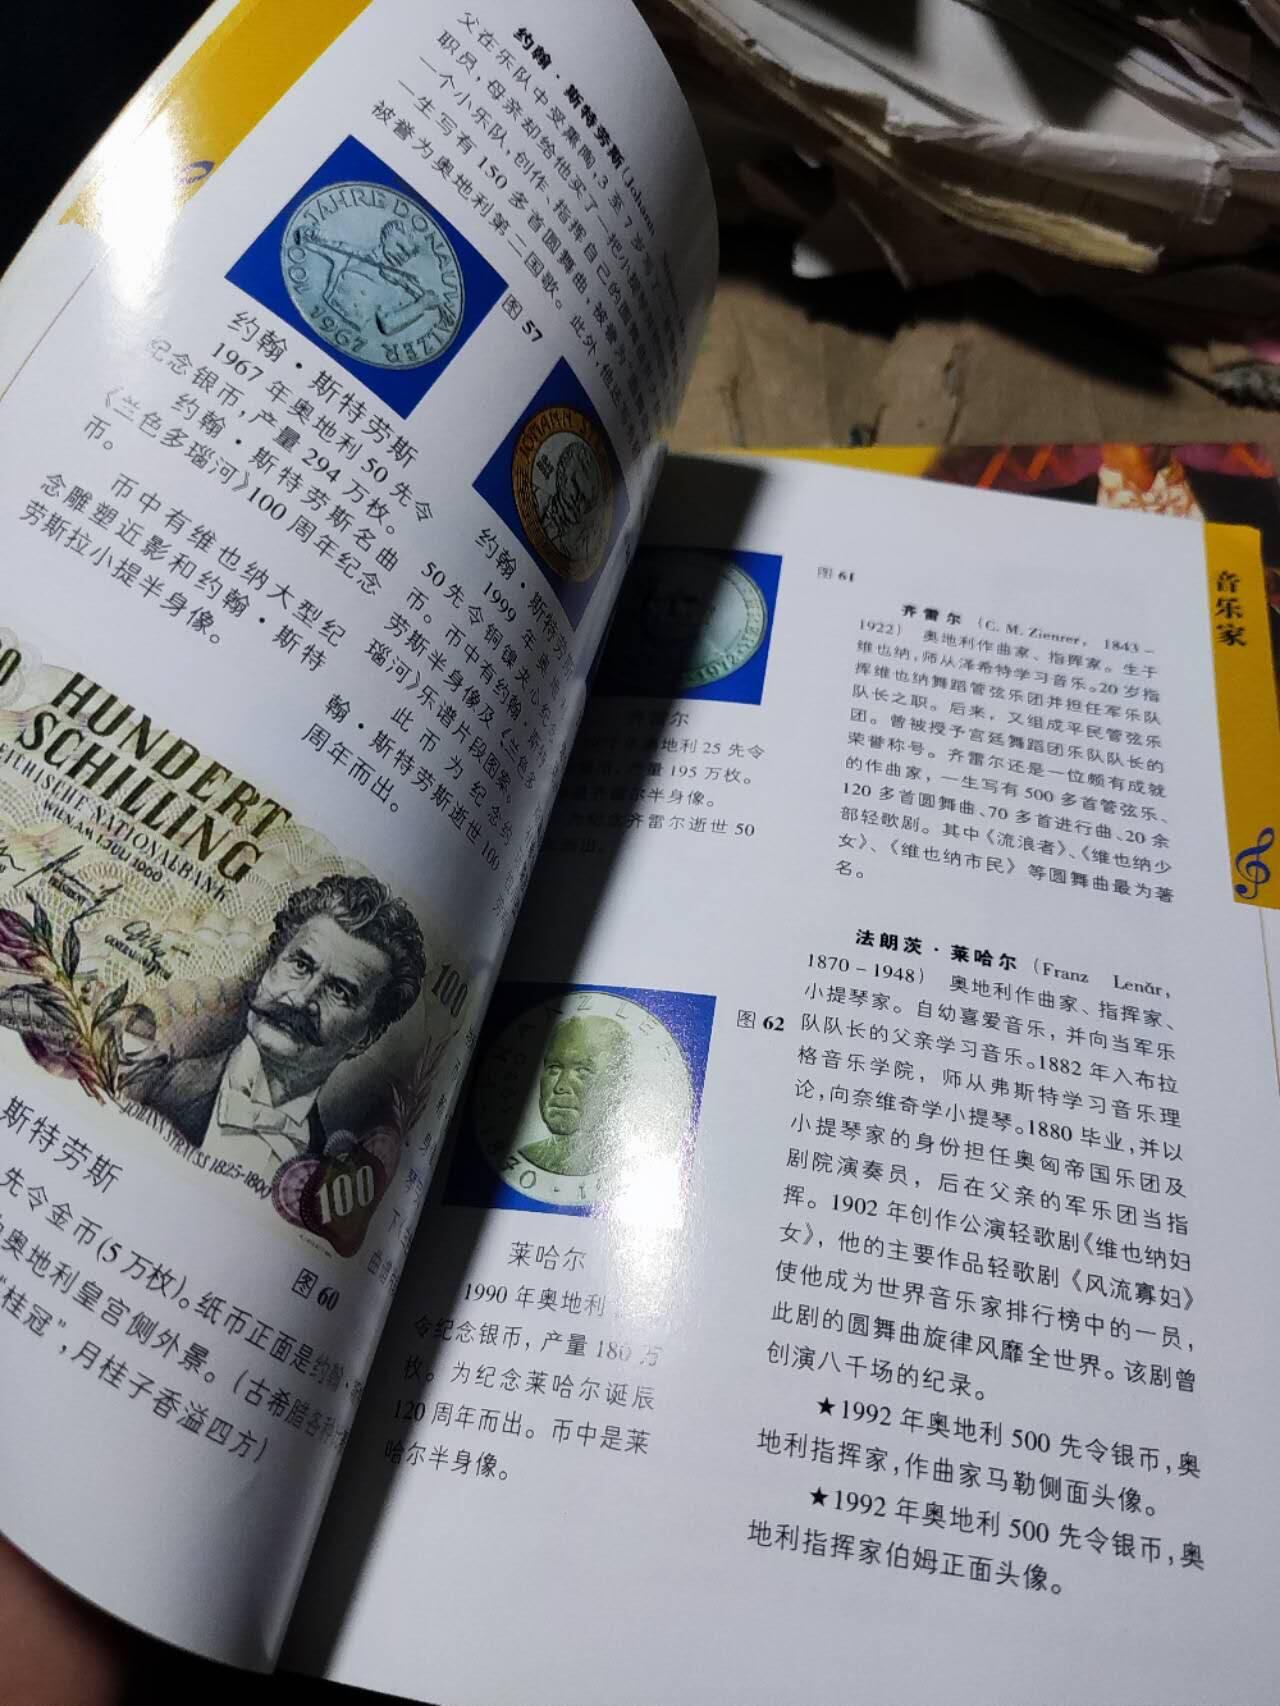 约翰·斯特劳斯(Johann
父在乐队中受熏陶,3至7岁写了
职员,母亲却给他买了一把小提琴
一个小乐队,创作、指挥自己的圆舞曲
一生写有150多首圆舞曲,被誉为
被誉为奥地利第二国歌。此外,他还
100 JAHRE DONAUWALZER
1967
图 57
约翰·斯特劳斯
1967年奥地利50先令
纪念银币,产量294万枚。
约翰·斯特劳斯名曲
《兰色多瑙河》100周年纪念
币。
币中有维也纳大型纪
念雕塑近影和约翰·斯特
劳斯拉小提半身像。
JOHANN
约翰·斯特劳斯
1999年奥地
50先令铜镍夹心纪念
币。币中有约翰·斯特
劳斯半身像及《兰色多
瑙河》乐谱片段图案。
此币为纪念约
翰·斯特劳斯逝世100
周年而出。
HUNDERT
SCHILLING
NATIONALBANK
100
JOHANN STRAUSS 1825-1899
100
图 60
斯特劳斯
先令金币(5万枚)。纸币正面是约翰·
奥地利皇宫侧外景。(古希腊各种
“桂冠”,月桂子香溢四方)
音乐家
图 61
齐雷尔
奥地利25先令
产量195万枚。
齐雷尔半身像。
为纪念齐雷尔逝世50
而出。
齐雷尔 (C. M. Zienrer, 1843–
1922) 奥地利作曲家、指挥家。生于
维也纳,师从泽希特学习音乐。20岁指
挥维也纳舞蹈管弦乐团并担任军乐队
队长之职。后来,又组成平民管弦乐
团。曾被授予宫廷舞蹈团乐队队长的
荣誉称号。齐雷尔还是一位颇有成就
的作曲家,一生写有500多首管弦乐、
120多首圆舞曲、70多首进行曲、20余
部轻歌剧。其中《流浪者》、《维也纳少
女》、《维也纳市民》等圆舞曲最为著
名。
图 62
莱哈尔
1990年奥地利
令纪念银币,产量180万
枚。为纪念莱哈尔诞辰
120周年而出。币中是莱
哈尔半身像。
法朗茨·莱哈尔 (Franz Lenăr,
1870–1948) 奥地利作曲家、指挥家、
小提琴家。自幼喜爱音乐,并向当军乐
队队长的父亲学习音乐。1882年入布拉
格音乐学院,师从弗斯特学习音乐理
论,向奈维奇学小提琴。1880毕业,并以
小提琴家的身份担任奥匈帝国乐团及
剧院演奏员,后在父亲的军乐团当指
挥。1902年创作公演轻歌剧《维也纳妇
女》,他的主要作品轻歌剧《风流寡妇》
使他成为世界音乐家排行榜中的一员,
此剧的圆舞曲旋律风靡全世界。该剧曾
创演八千场的纪录。
★1992年奥地利500先令银币,奥
地利指挥家,作曲家马勒侧面头像。
★1992年奥地利500先令银币,奥
地利指挥家伯姆正面头像。